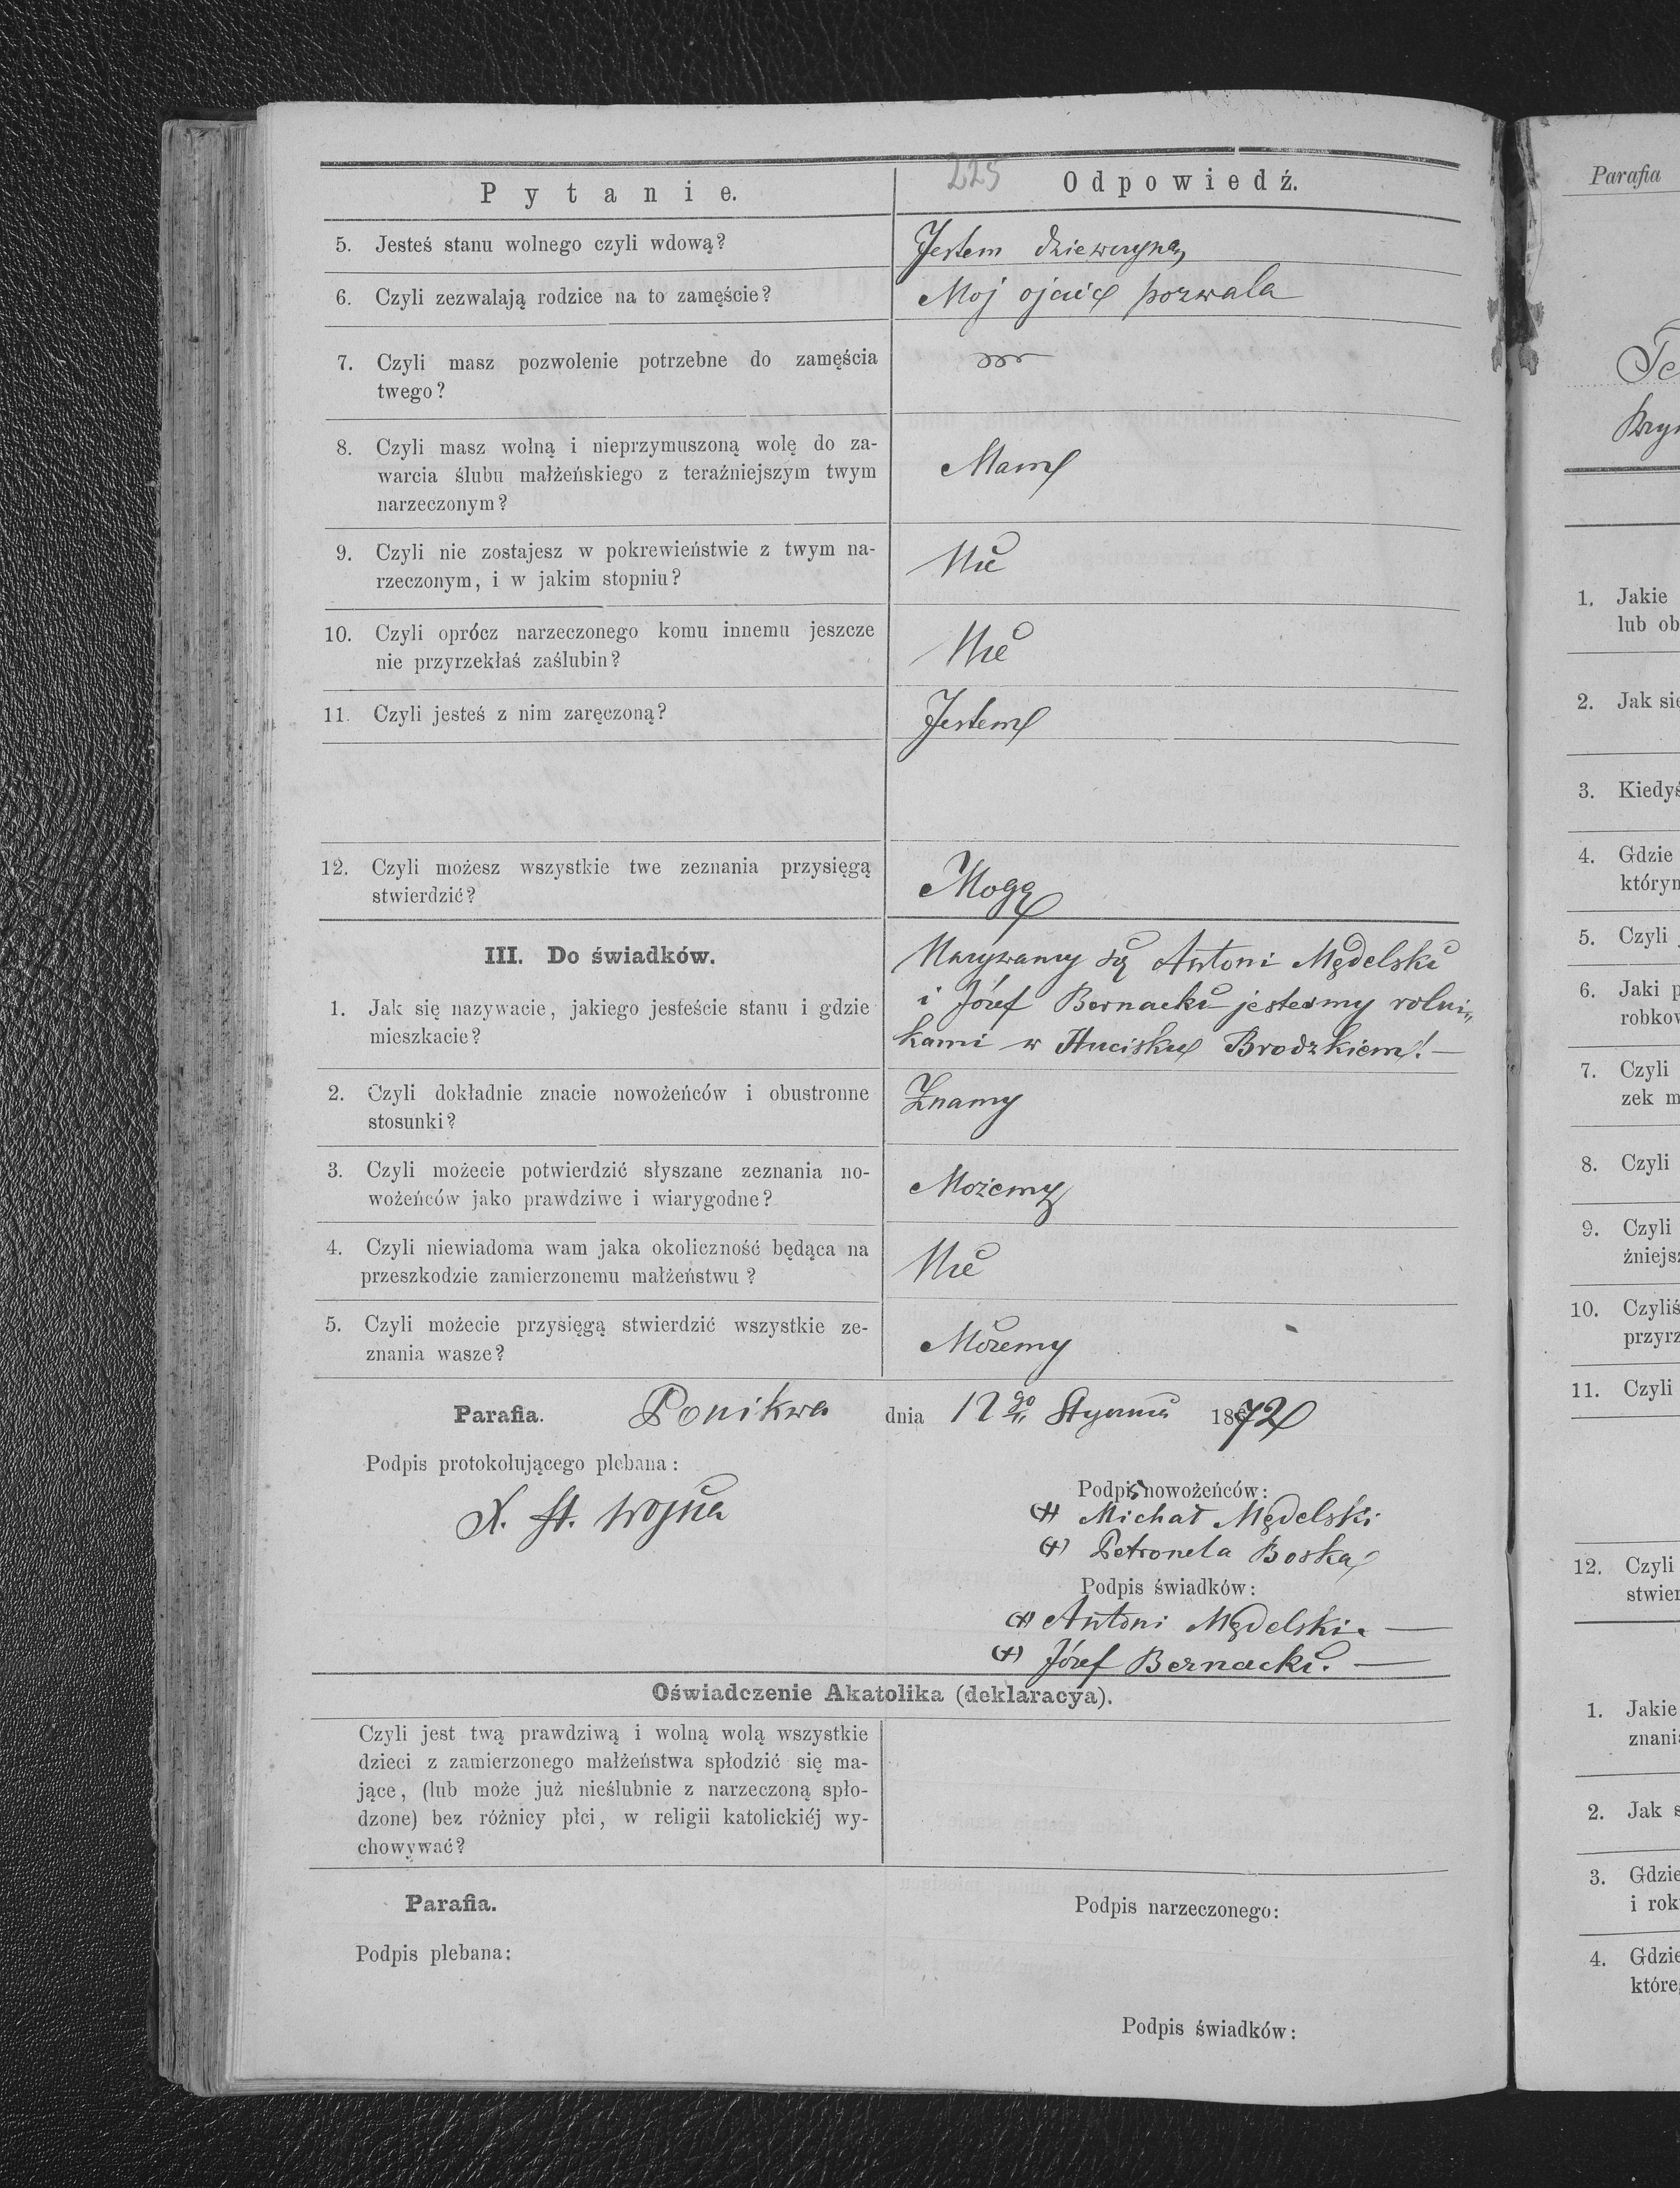 225
Pytanie. Odpowiedź.
5. Jesteś stanu wolnego czyli wdową? Jestem dziewczyną
6. Czyli zezwalają rodzice na to zamęście? Moj ojciec pozwala
7. Czyli masz pozwolenie potrzebne do zamęścia
twego?
8. Czyli masz wolną i nieprzymuszoną wolę do za-
warcia ślubu małżeńskiego z teraźniejszym twym
narzeczonym? Mam
9. Czyli nie zostajesz w pokrewieństwie z twym na-
rzeczonym, i w jakim stopniu? Nie
10. Czyli oprócz narzeczonego komu innemu jeszcze
nie przyrzekłaś zaślubin? Nie
11. Czyli jesteś z nim zaręczoną? Jestem
12. Czyli możesz wszystkie twe zeznania przysięgą
stwierdzić? Mogę
III. Do świadków.
1. Jak się nazywacie, jakiego jesteście stanu i gdzie
mieszkacie?
Nazywamy się Antoni Mędelski
i Józef Bernacki jestesmy rolni„
kami w Hucisku Brodzkiem! —
2. Czyli dokładnie znacie nowożeńców i obustronne
stosunki? Znamy
3. Czyli możecie potwierdzić słyszane zeznania no-
wożeńców jako prawdziwe i wiarygodne? Możemy
4. Czyli niewiadoma wam jaka okoliczność będąca na
przeszkodzie zamierzonemu małżeństwu? Nie
5. Czyli możecie przysięgą stwierdzić wszystkie ze-
znania wasze? Możemy
Parafia. Ponikwa dnia 12go Stycznia 1872
Podpis protokołującego plebana:
X. St. Wojna
Podpis nowożeńców:
(+) Michał Mędelski
(+) Petronela Boska
Podpis świadków:
(+) Antoni Mędelski. —
(+) Józef Bernacki. —
Oświadczenie Akatolika (deklaracya).
Czyli jest twą prawdziwą i wolną wolą wszystkie
dzieci z zamierzonego małżeństwa spłodzić się ma-
jące, (lub może już nieślubnie z narzeczoną spło-
dzone) bez różnicy płci, w religii katolickiéj wy-
chowywać?
Parafia.
Podpis narzeczonego:
Podpis plebana:
Podpis świadków:
Parafia
1. Jakie
lub ob
2. Jak się
3. Kiedyś
4. Gdzie
którym
5. Czyli
6. Jaki p
robkow
7. Czyli
zek m
8. Czyli
9. Czyli
źniejsz
10. Czyliś
przyrz
11. Czyli
12. Czyli
stwier
1. Jakie
znani
2. Jak s
3. Gdzie
i rok
4. Gdzie
które